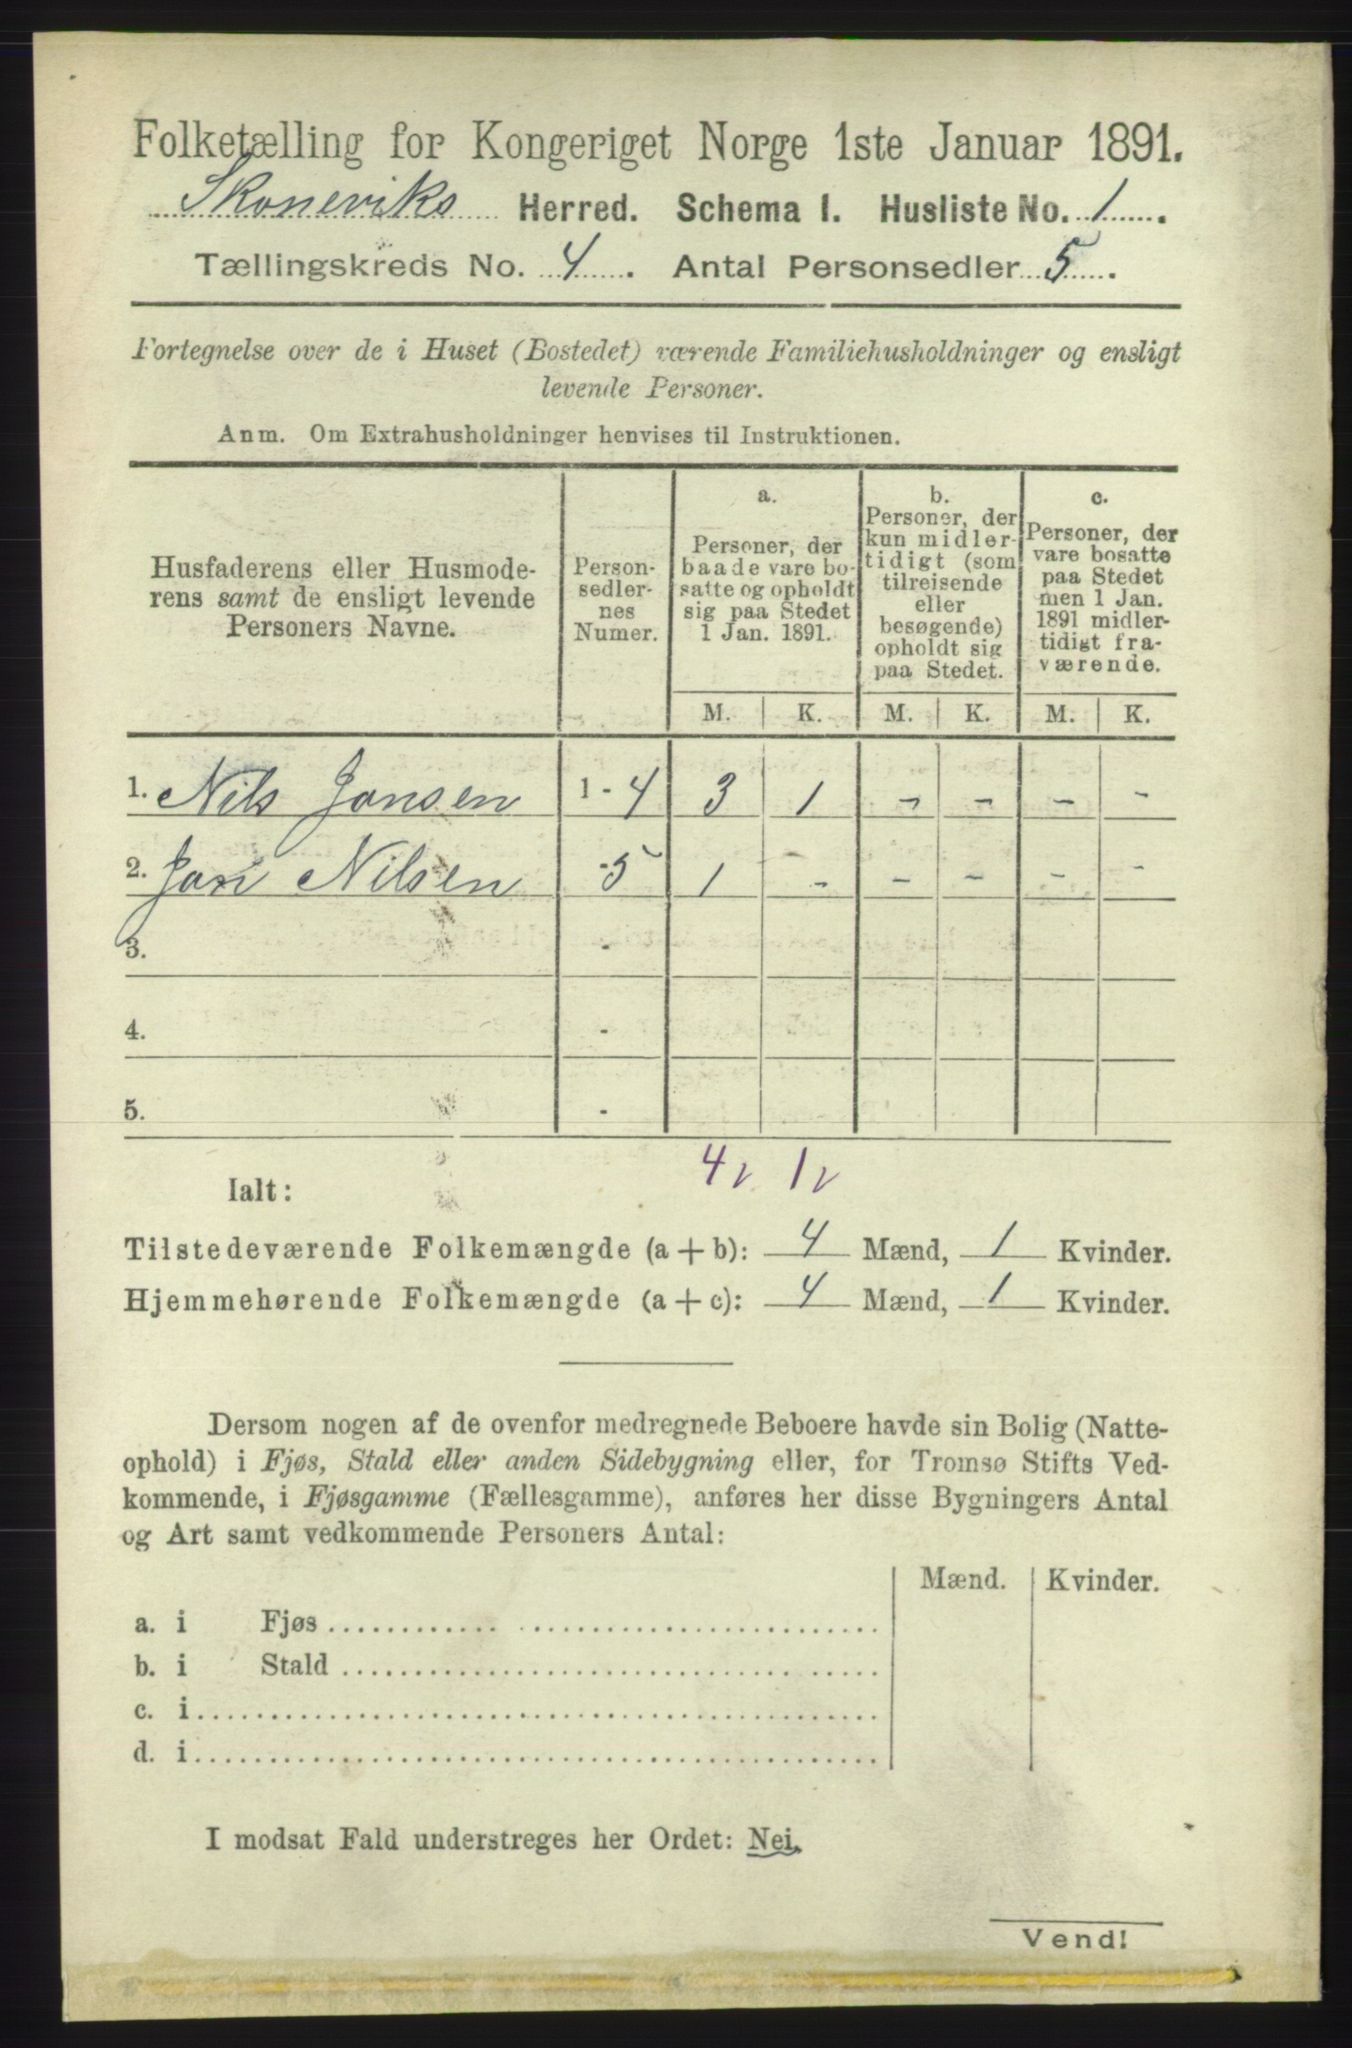 Folketælling for Kongeriget Norge 1ste Januar 1891.
Skoneviks Herred. Schema I. Husliste No. 1.
Tællingskreds No. 4. Antal Personsedler 5.
Fortegnelse over de i Huset (Bostedet) værende Familiehusholdninger og ensligt
levende Personer.
Anm. Om Extrahusholdninger henvises til Instruktionen.
Husfaderens eller Husmode-
rens samt de ensligt levende
Personers Navne.
Person-
sedler-
nes
Numer.
a.
Personer, der
baade vare bo-
satte og opholdt
sig paa Stedet
1 Jan. 1891.
b.
Personer, der
kun midler-
tidigt (som
tilreisende
eller
besøgende)
opholdt sig
paa Stedet.
c.
Personer, der
vare bosatte
paa Stedet
men 1 Jan.
1891 midler-
tidigt fra-
værende.
M. K. M. K. M. K.
1. Nils Jansen 1 - 4 3 1 - - - -
2. Jan Nilsen - 5 1 - - - - -
3. -
4. -
5. -
4 v 1 v
Ialt:
Tilstedeværende Folkemængde (a + b): 4 Mænd, 1 Kvinder.
Hjemmehørende Folkemængde (a + c): 4 Mænd, 1 Kvinder.
Dersom nogen af de ovenfor medregnede Beboere havde sin Bolig (Natte-
ophold) i Fjøs, Stald eller anden Sidebygning eller, for Tromsø Stifts Ved-
kommende, i Fjøsgamme (Fællesgamme), anføres her disse Bygningers Antal
og Art samt vedkommende Personers Antal:
Mænd. Kvinder.
a. i Fjøs
b. i Stald
c. i
d. i
I modsat Fald understreges her Ordet: Nei.
Vend!